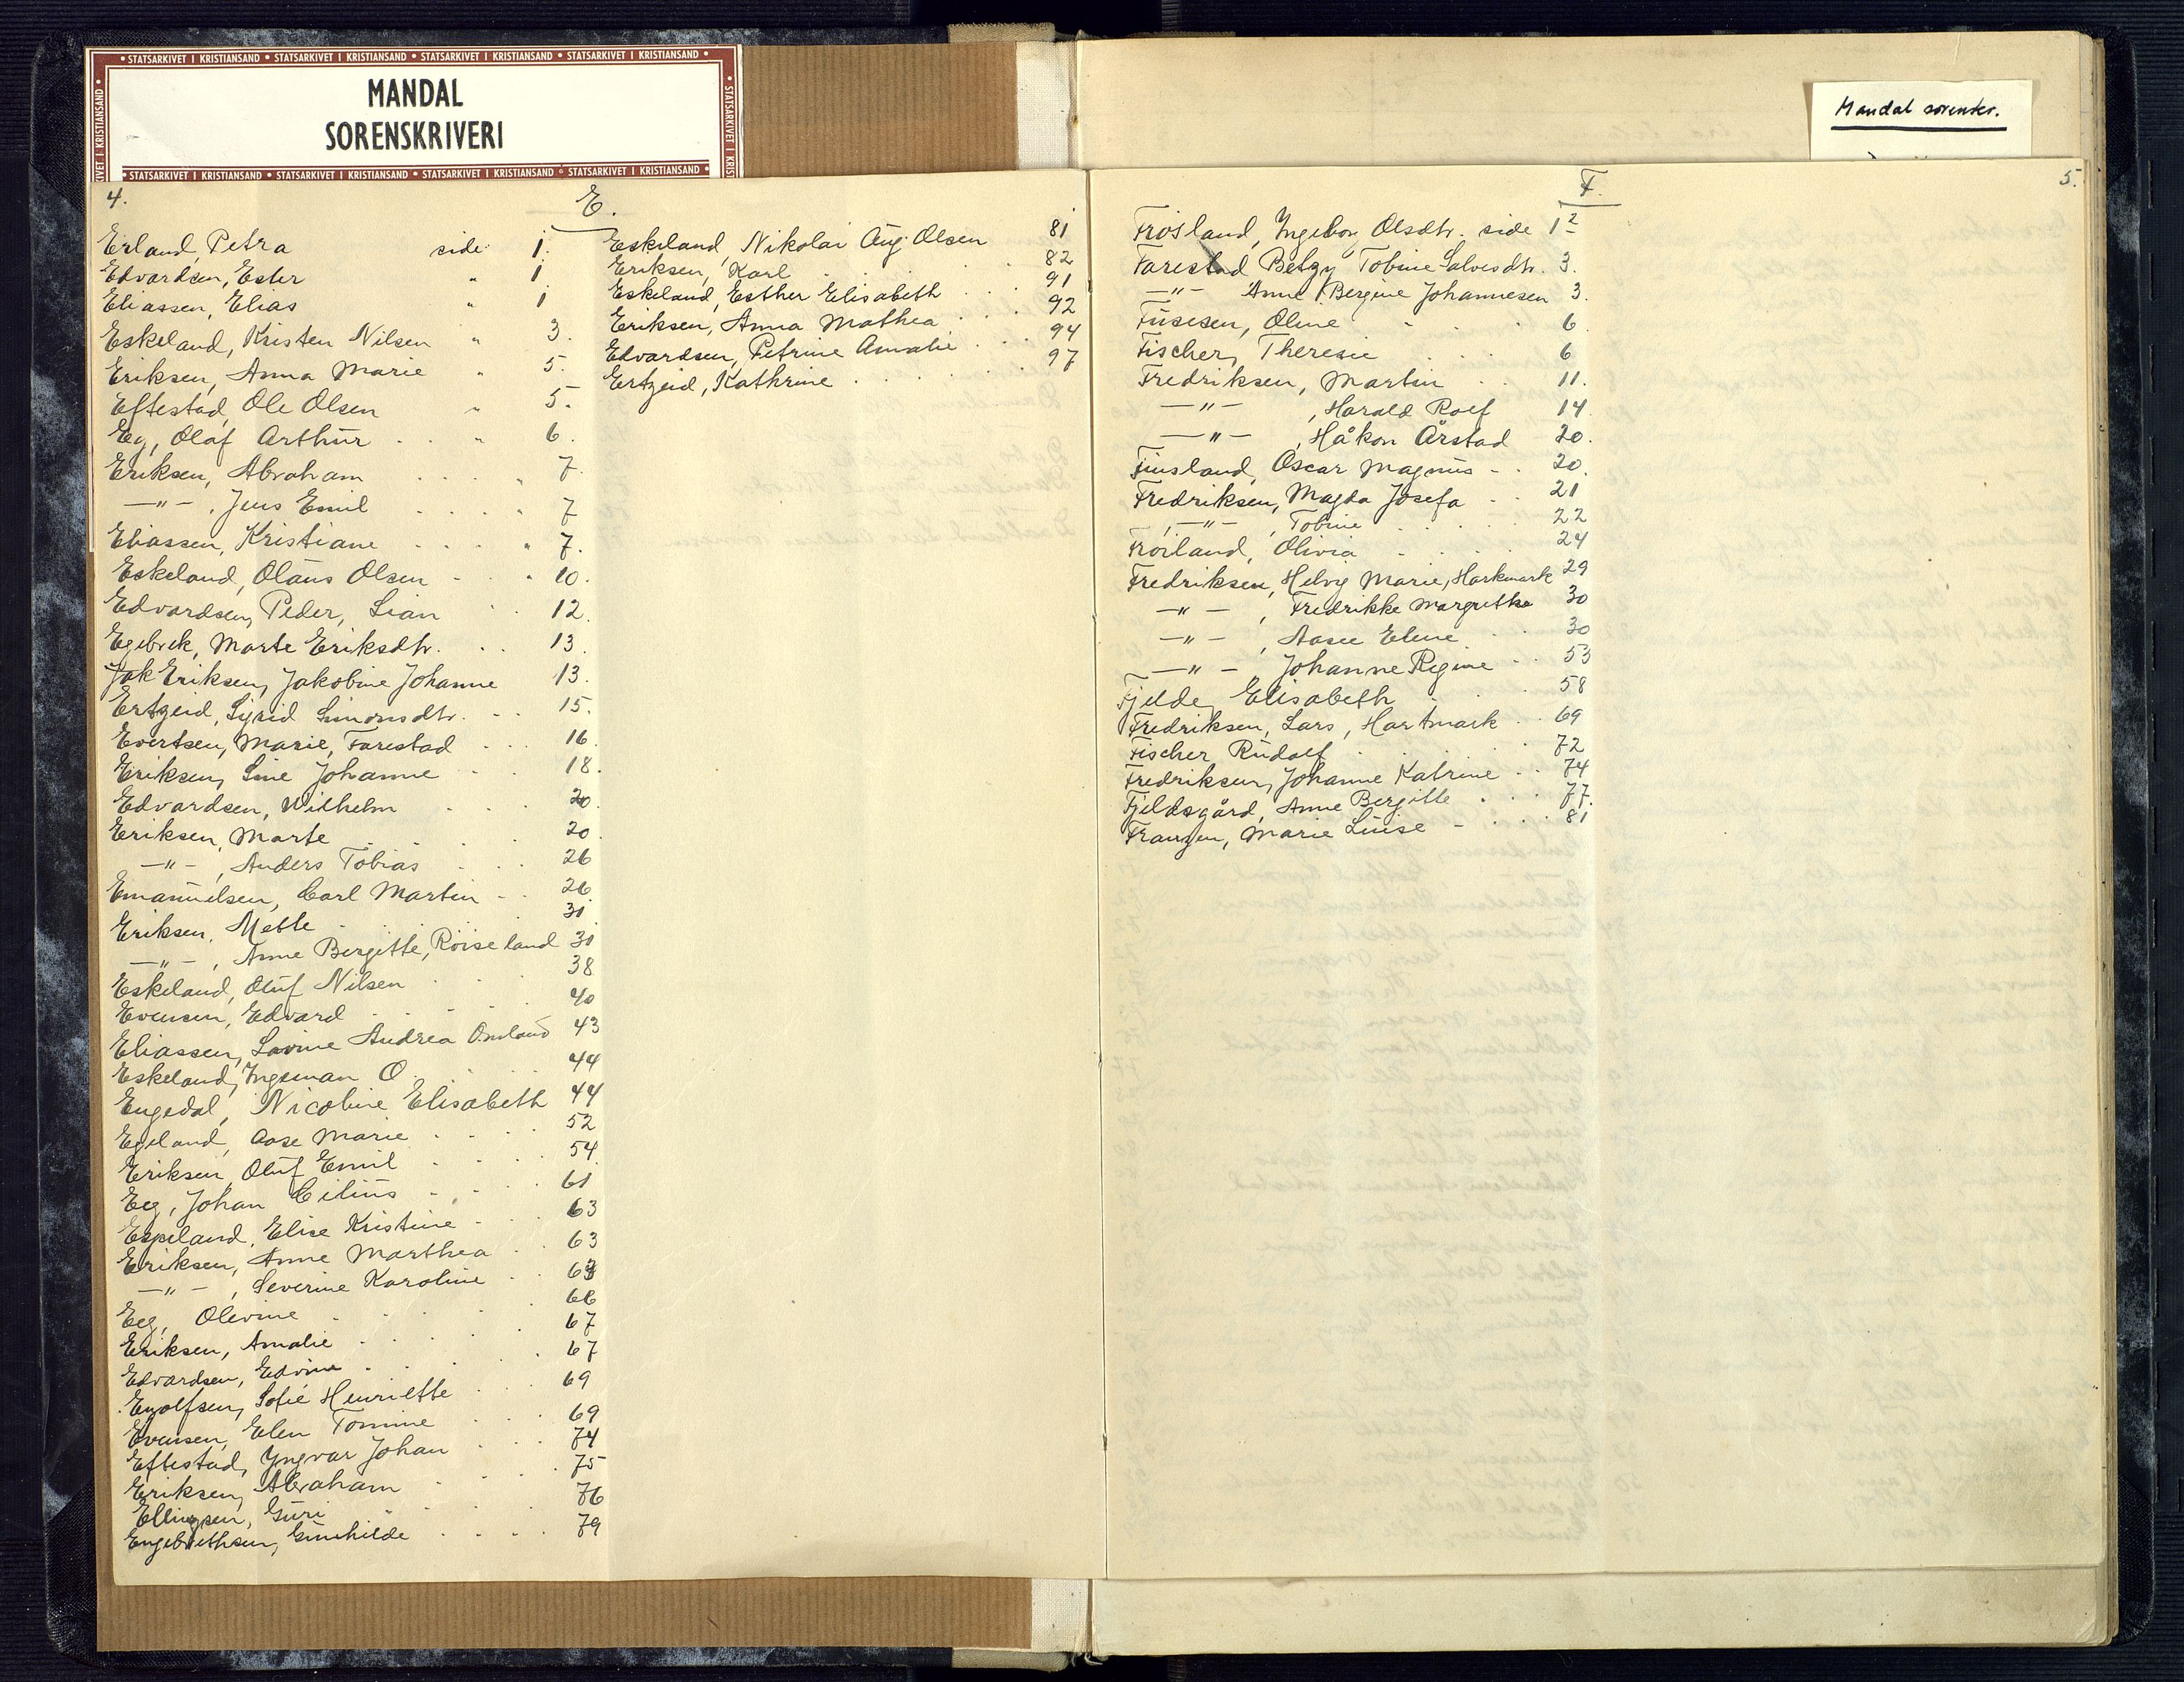 STATSARKIVET I KRISTIANSAND • STATSARKIVET I KRISTIANSAND • STATSARKIVET I KRISTIANSAND • STATSARKIVET I KRISTIANSAND
MANDAL
SORENSKRIVERI
STATSARKIVET I KRISTIANSAND • STATSARKIVET I KRISTIANSAND • STATSARKIVET I KRISTIANSAND • STATSARKIVET I KRISTIANSAND
Mandal sorenskr.
4.
E.
Erland, Petra side 1.
Edvardsen, Ester " 1
Eliassen, Elias " 1
Eskeland, Kristen Nilsen " 3.
Eriksen, Anna Marie " 5.
Eftestad, Ole Olsen " 5.
Eg, Olaf Arthur " 6.
Eriksen, Abraham " 7.
—"— , Jens Emil " 7
Eliassen, Kristiane " 7.
Eskeland, Olaus Olsen " 10.
Edvardsen, Peder, Lian 12.
Egebrek, Marte Eriksdtr. 13.
Eriksen, Jakobine Johanne 13.
Ertzeid, Sigrid Simonsdtr. 15.
Evertsen, Marie, Farestad 16.
Eriksen, Line Johanne 18.
Edvardsen, Wilhelm 20.
Eriksen, Marte 20.
—"— , Anders Tobias 26
Emanuelsen, Carl Martin 26
Eriksen, Mette 31
—"— , Anne Bergitte, Röiseland 31
Eskeland, Oluf Nilsen 38
Evensen, Edvard 40
Eliassen, Lovine Andrea Omland 43
Eskeland, Ingeman O. 44
Engedal, Nicoline Elisabeth 44
Egeland, Aase Marie 52
Eriksen, Oluf Emil 54
Eeg, Johan Cilius 61
Espeland, Elise Kristine 63
Eriksen, Anne Marthea 63
—"— , Severine Karoline 63
Eeg, Olevine 66
Eriksen, Amalie 67
Edvardsen, Edvine 67
Eyolfsen, Sofie Henriette 69
Evensen, Elen Tomine 69
Eftestad, Yngvar Johan 74
Eriksen, Abraham 75
Ellingsen, Guri 76
Engebrethsen, Gunhilde 79
Eskeland, Nikolai Aug. Olsen 81
Eriksen, Karl 82
Eskeland, Esther Elisabeth 91
Eriksen, Anna Mathea 92
Edvardsen, Petrine Amalie 94
Ertzeid, Kathrine 97
5.
F.
Fröisland, Ingeborg Olsdtr. side 1
Farestad Betzy Tobine Salvesdtr. 3.
—"— Anne Bergine Johannesen 3.
Fuscsen, Oline 6.
Fischer, Theresie 6
Fredriksen, Martin 11.
—"— , Harald Rolf 14
—"— , Håkon Årstad 20.
Finsland, Oscar Magnus 20.
Fredriksen, Magda Josefa 21
—"— , Tobine 22
Fröiland, Olivia 24
Fredriksen, Helvig Marie, Harkmark 29
—"— , Fredrikke Margrethe 30
—"— , Aasee Eline 30
—"— Johanne Regine 53
Fjelde, Elisabeth 58
Fredriksen, Lars, Hartmark 69
Fischer, Rudolf 72
Fredriksen, Johanne Katrine 74
Fjeldsgård, Anne Bergitte 77.
Franzen, Marie Luise 81